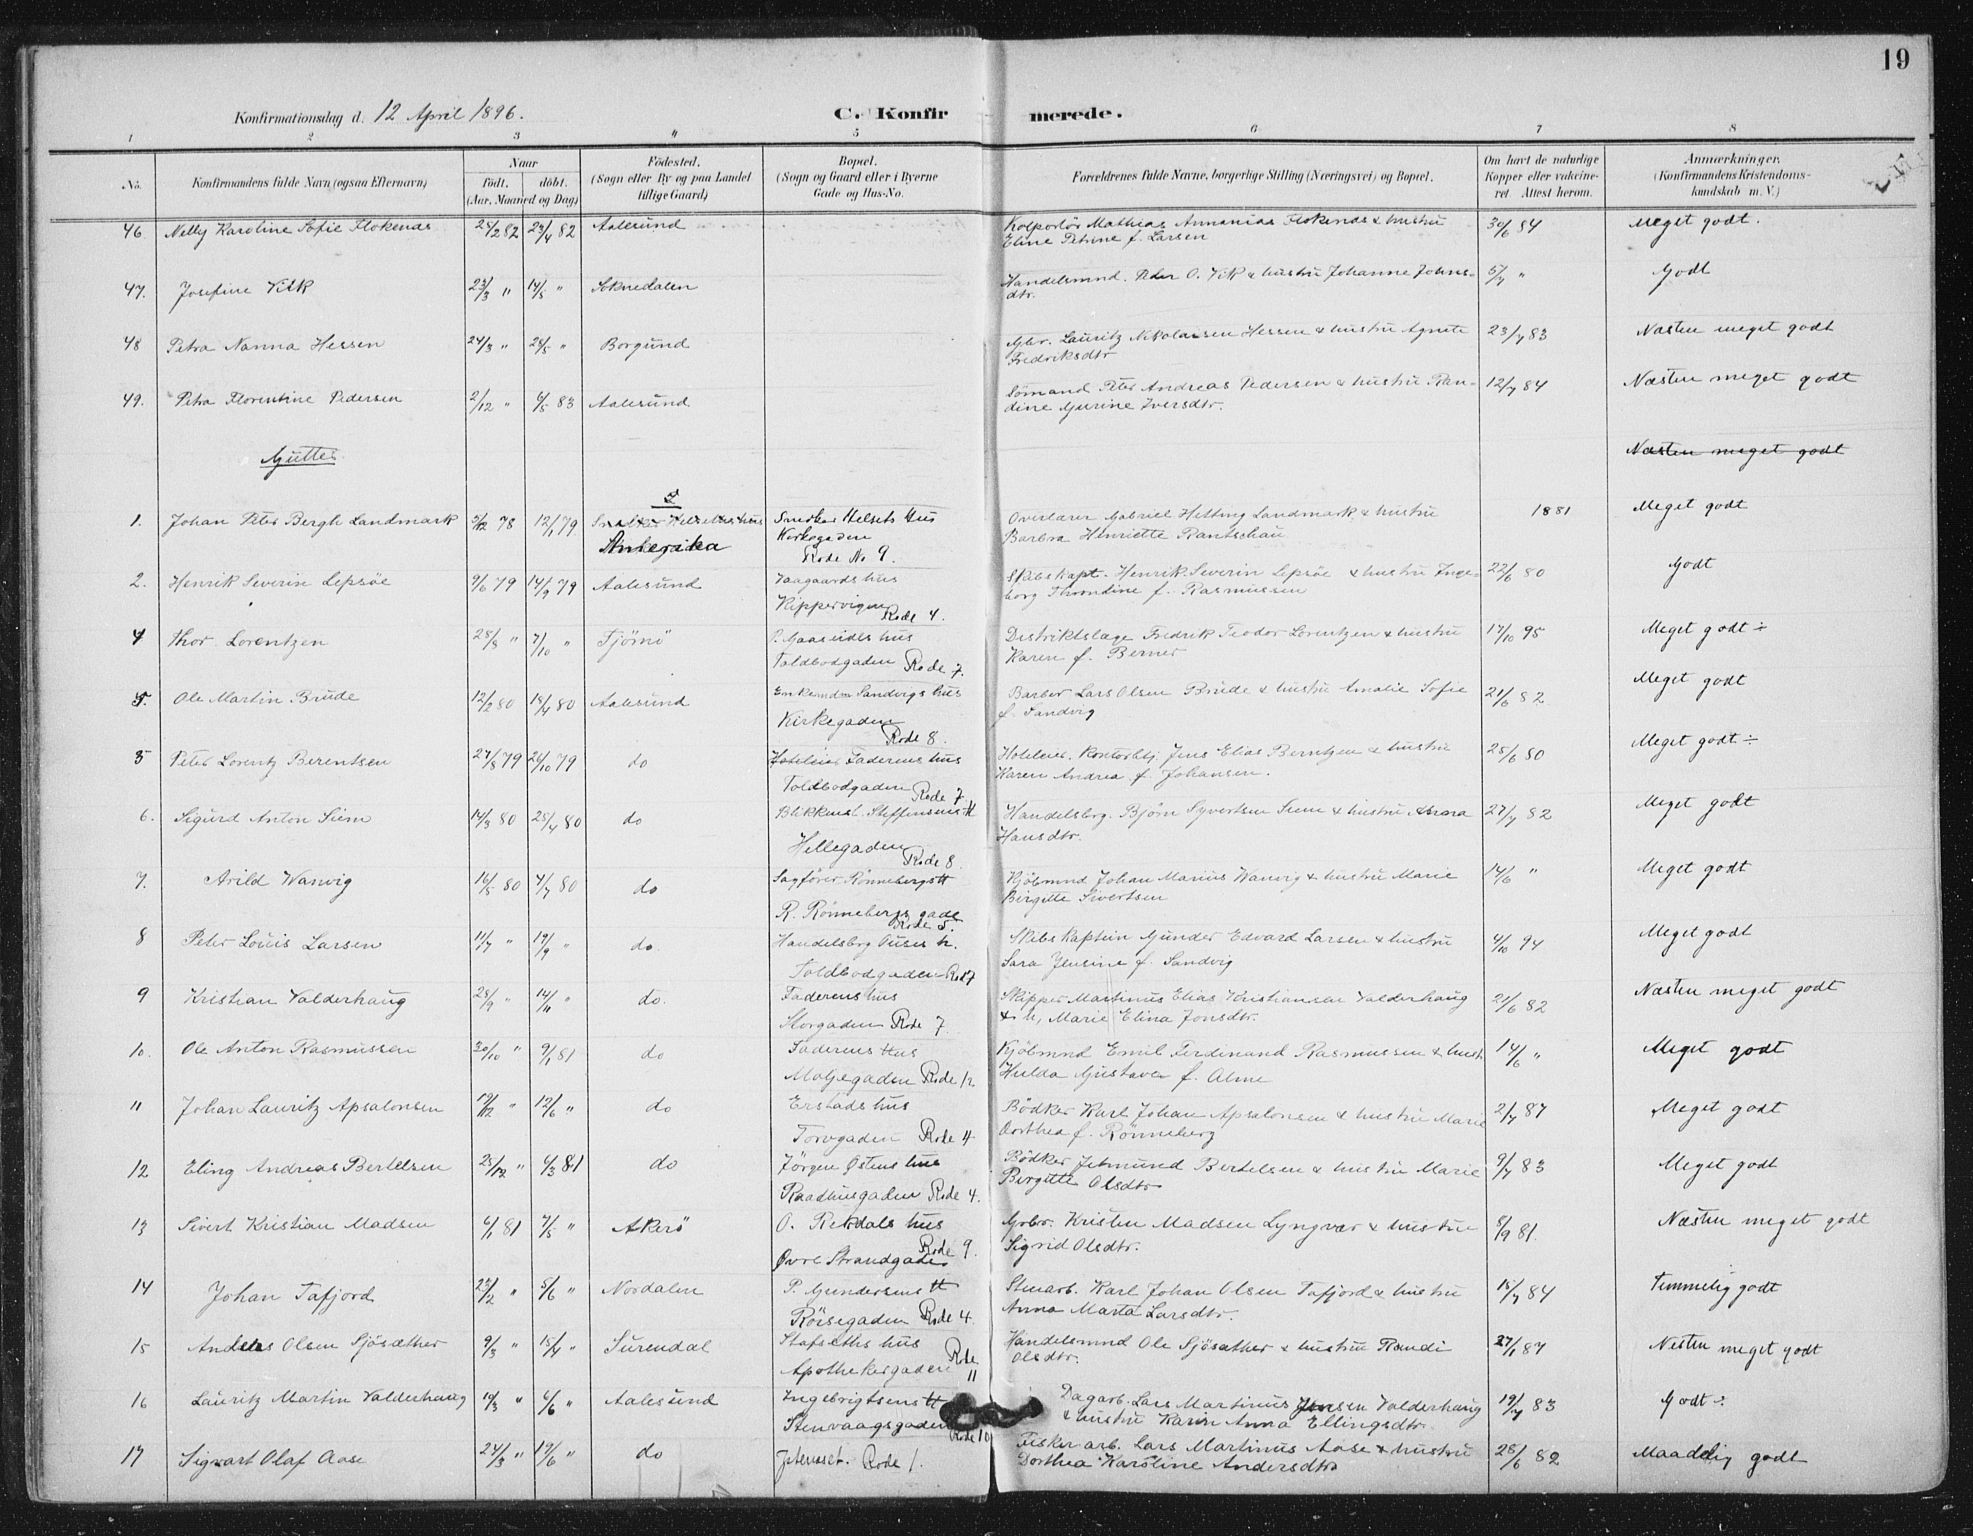 19
Konfirmationsdag d. 12 April 1896. C. Konfirmerede.
1 2 3 " 5 6 7 8
No. Konfirmandens fulde Navn (ogsaa Efternavn) Naar født. døbt. (Aar, Maaned og Dag) Födested. (Sogn eller By og paa Landet tillige Gaard) Bopæl. (Sogn og Gaard eller i Byerne Gade og Hus-No. Forældrenes fulde Navne, borgerlige Stilling (Næringsvei) og Bopæl. Om havt de naturlige Kopper eller vakcineret. Attest herom. Anmærkninger. (Konfirmandens Kristendomskundskab m. V.)
46 Nelly Karoline Sofie Flokenæs 24/2 82 23/4 82 Aalesund Kolportör Mathias Annanias Flokenæs & hustru 30/6 84 Meget godt.
Eline Petrine f. Larsen
47. Josefine Vik 23/3 " 14/5 " Soknedalen Handelsmnd. Peder O. Vik & hustru Johanne Johns- 5/7 " Godt
dtr.
48 Petra Nanna Hessen 24/3 " 28/5 " Borgund Gbr. Lauritz Nikolaisen Hessen & hustru Agnete 23/7 83 Næsten meget godt
Fredriksdtr
49. Petra Florentine Pedersen 2/12 " 6/5 83 Aalesund Sömand Peter Andreas Pedersen & hustru Ran- 12/7 84 Næsten meget godt
dine Gurine Iversdtr.
Gutter. Næsten meget godt
1. Johan Peter Bergh Landmark 5/12 78 12/1 79 Snedker Helsets hus Snedker Helsets Hus Overlærer Gabriel Hetting Landmark & hustru 1881 Meget godt
Amerika Kirkegaden Barbra Henriette Rantschau
Rode No 9.
2. Henrik Severin Lepsöe 9/6 79 14/9 79 Aalesund Vaagaards hus Skibskapt. Henrik Severin Lepsöe & hustru Inge- 22/6 80 Godt
Kippervigen Rode 4. borg Throndine f. Rasmussen
4 Thor Lorentzen 28/8 " 7/10 " Tjömö P. Gaaseides hus Distriktslæge Fredrik Teodor Lorentzen & hustru 17/10 95 Meget godt ÷
Toldbodgaden Rode 7. Karen f. Berner
5. Ole Martin Brude 12/2 80 18/4 80 Aalesund Enkemdm Sandvigs hus Barber Lars Olsen Brude & hustru Amalie Sofie 21/6 82 Meget godt
Kirkegaden f. Sandvig
Rode 8.
5 Peter Lorentz Berentsen 27/8 79 26/10 79 do Hoteleier Faderens hus Hoteleier. Kontorbtj. Jens Elias Berntzen & hustru 25/6 80 Meget godt ÷
Toldbodgaden Rode 7 Karen Andrea f. Johansen.
6. Sigurd Anton Siem 14/3 80 25/4 80 do Blikkensl. Steffensens H Handelsbrg. Bjørn Syvertsen Siem & hustru Anna 27/7 82 Meget godt
Hellegaden Rode 8 Hansdtr.
7. Arild Wanvig 16/5 80 4/7 80 do Sagfører Rønnebergs H Kjöbmnd Johan Marius Wanvig & hustru Marie 14/6 " Meget godt
R. Rønnebergs gade Rode 5. Birgitte Sivertsen
8 Peter Louis Larsen 11/7 " 19/9 " do. Handelsbrg Ouses h. Skibskaptein Gunder Edvard Larsen & hustru 4/10 94 Meget godt
Toldbodgaden Rode 7 Sara Jensine f. Sandvig
9 Kristian Valderhaug 28/9 " 14/11 " do. Faderens hus Skipper Martinus Elias Kristiansen Valderhaug 21/6 82 Næsten meget godt
Storgaden Rode 7. & h, Marie Elina Jonsdtr.
10. Ole Anton Rasmussen 30/10 " 9/1 81 do Faderens Hus Kjöbmnd Emil Ferdinand Rasmussen & hust. 14/6 " Meget godt
Moljegaden Rode 12 Hulda Gustava f. Alme
11 Johan Lauritz Apsalonsen 19/12 " 12/6 " do Erstads hus Bödker Karl Johan Apsalonsen & hustru Marie 2/7 87 Meget godt
Torvgaden Rode 4 Dorthea f. Rönneberg
12 Eling Andreas Bertelsen 25/12 " 6/3 81 do Jörgen Østens hus Bödker Jetmund Bertelsen & hustru Marie 9/7 83 Meget godt
Raadhusgaden Rode 4. Birgitte Olsdtr
13 Sivert Kristian Madsen 6/1 81 7/5 " Akerö O. Rekdals hus Gbr. Kristen Madsen Lyngvær & hustru 8/9 81. Næsten meget godt
Øvre Strandgade Rode 9. Sigrid Olsdtr.
14 Johan Tafjord 23/2 " 5/6 " Nordalen P. Gundersens H Stuarb. Karl Johan Olsen Tafjord & hustru 15/7 84 Temmelig godt
Rörsegaden Rode 4. Anna Marta Larsdtr.
15 Anders Olsen Sjösæther 9/3 " 15/4 " Surendal Stafseths hus Handelsmnd Ole Sjösæther & hustru Randi 27/1 87 Nesten meget godt
Apothekergaden Rode 11 Olsdtr.
16 Lauritz Martin Valderhaug 19/3 " 6/6 " Aalesund Ingebrigtsens H Dagarb. Lars Martinus Jensen Valderhaug 19/7 83 Godt ÷
Stenvaagsgaden Rode 10 & hustru Karin Anna Ellingsdtr.
17 Sigvart Olaf Aase 24/3 " 19/6 " do Jetenset. Rode 1. Fiskerarb. Lars Martinus Aase & hustru 28/6 82 Maadelig godt
Dorthea Karoline Andersdtr